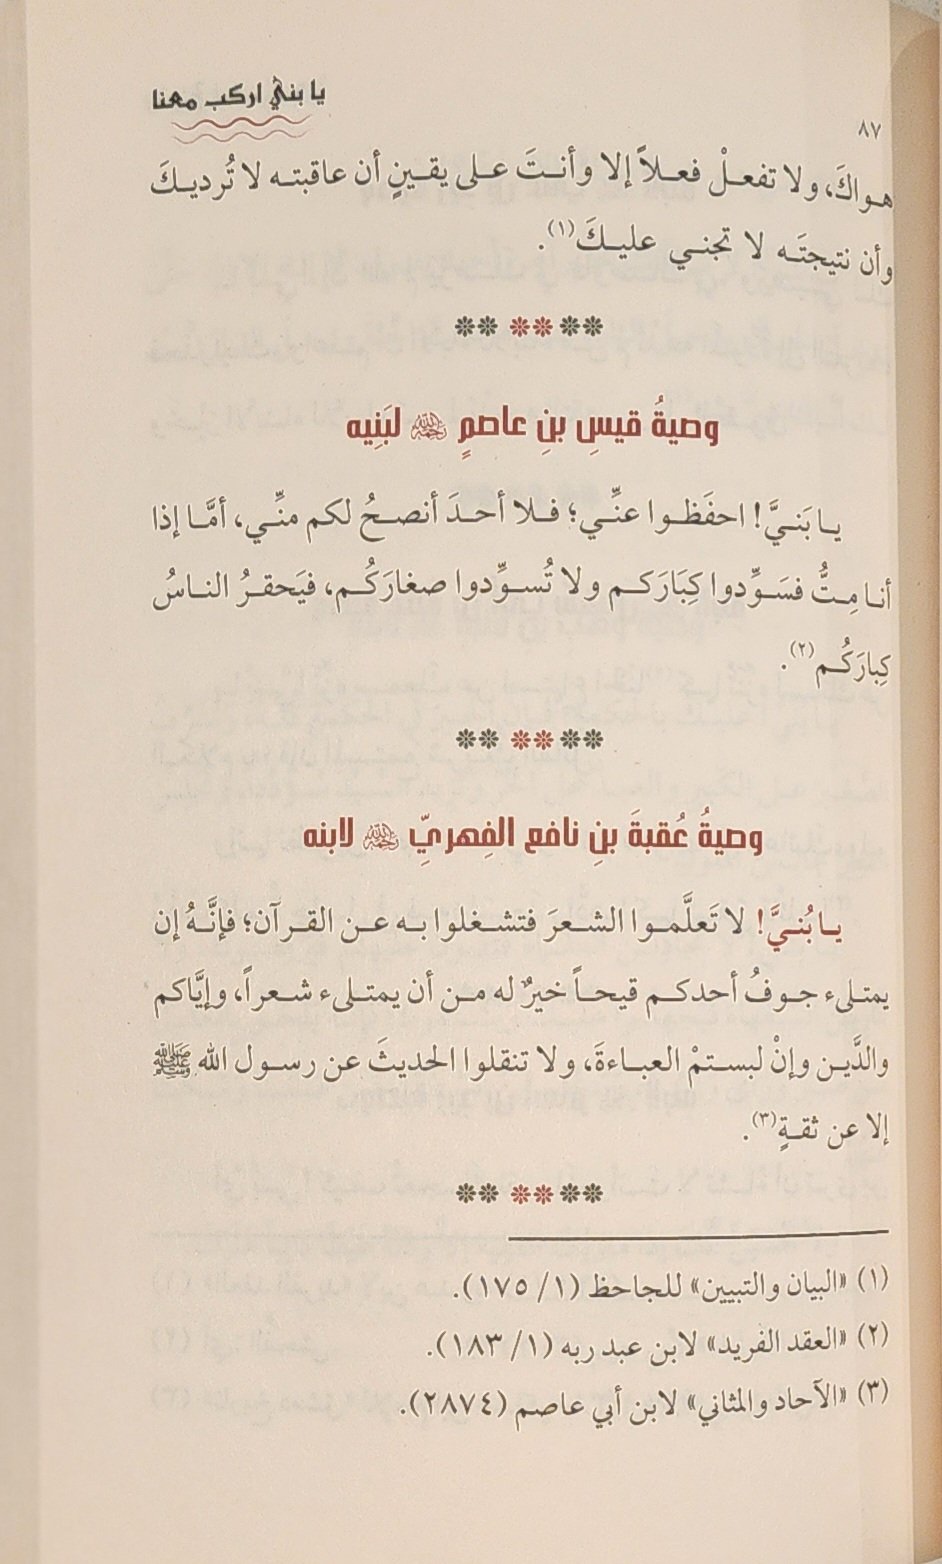 يا بني اركب معنا
٨٧
هـواكَ، ولا تفعـلْ فعـلاً إلا وأنـتَ عـلى يقـينٍ أن عاقبتـه لا تُرديـكَ
وأن نتيجتَـه لا تجنـي عليـكَ(١).
وصيةُ قيسِ بنِ عاصمٍ ﵀ لبَنِيه
يـا بَنـيَّ! احفَظـوا عنِّـي؛ فـلا أحـدَ أنصـحُ لكم منِّـي، أمَّـا إذا
أنـا مِـتُّ فسَـوِّدوا كِبَارَكـم ولا تُسـوِّدوا صغارَكُـم، فيَحقـرُ النـاسُ
كِبارَكُـم(٢).
وصيةُ عُقبةَ بنِ نافع الفِهريِّ ﵀ لابنه
يـا بُنـيَّ! لا تَعلَّمـوا الشـعرَ فتشـغلوا بـه عـن القـرآن؛ فإنَّـهُ إن
يمتـلىء جـوفُ أحدكـم قيحـاً خيرٌ له مـن أن يمتـلىء شـعراً، وإيَّاكم
والدَّيـن وإنْ لبسـتمْ العبـاءةَ، ولا تنقلـوا الحديثَ عن رسـول الله ﷺ
إلا عن ثقـةٍ(٣).
(١) «البيان والتبيين» للجاحظ (١/ ١٧٥).
(٢) «العقد الفريد» لابن عبد ربه (١/ ١٨٣).
(٣) «الآحاد والمثاني» لابن أبي عاصم (٢٨٧٤).